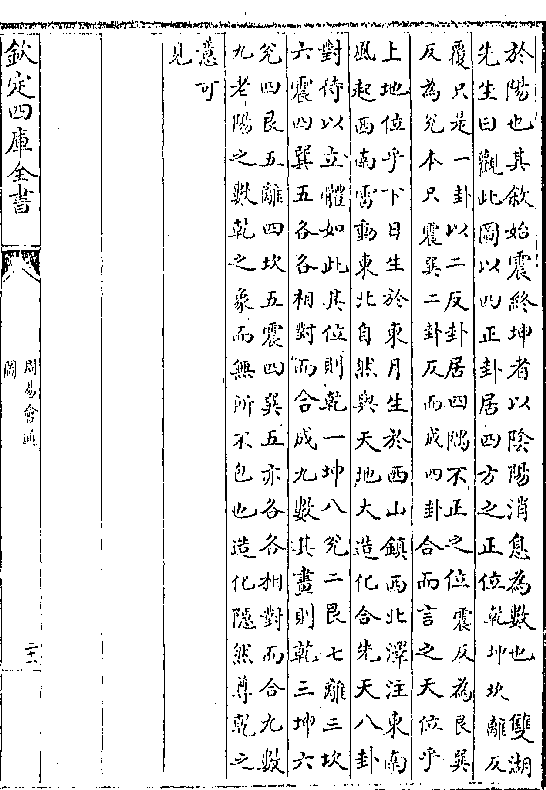 於陽也其敘始震終坤者以陰陽消息為數也 雙湖
先生曰觀此圖以四正卦居四方之正位乾坤坎離反
覆只是一卦以二反卦居四隅不正之位震反為艮巽
反為兌本只震巽二卦反而成四卦合而言之天位乎
上地位乎下日生於東月生於西山鎮西北澤注東南
風起西南雷動東北自然與天地大造化合先天八卦
對待以立體如此其位則乾一坤八兌二艮七離三坎
六震四巽五各各相對而合成九數其畫則乾三坤六
兌四艮五離四坎五震四巽五亦各各相對而合九數
九老陽之數乾之象而無所不包也造化隱然尊乾之
意可
見
欽定四庫全書
周易會通
圖